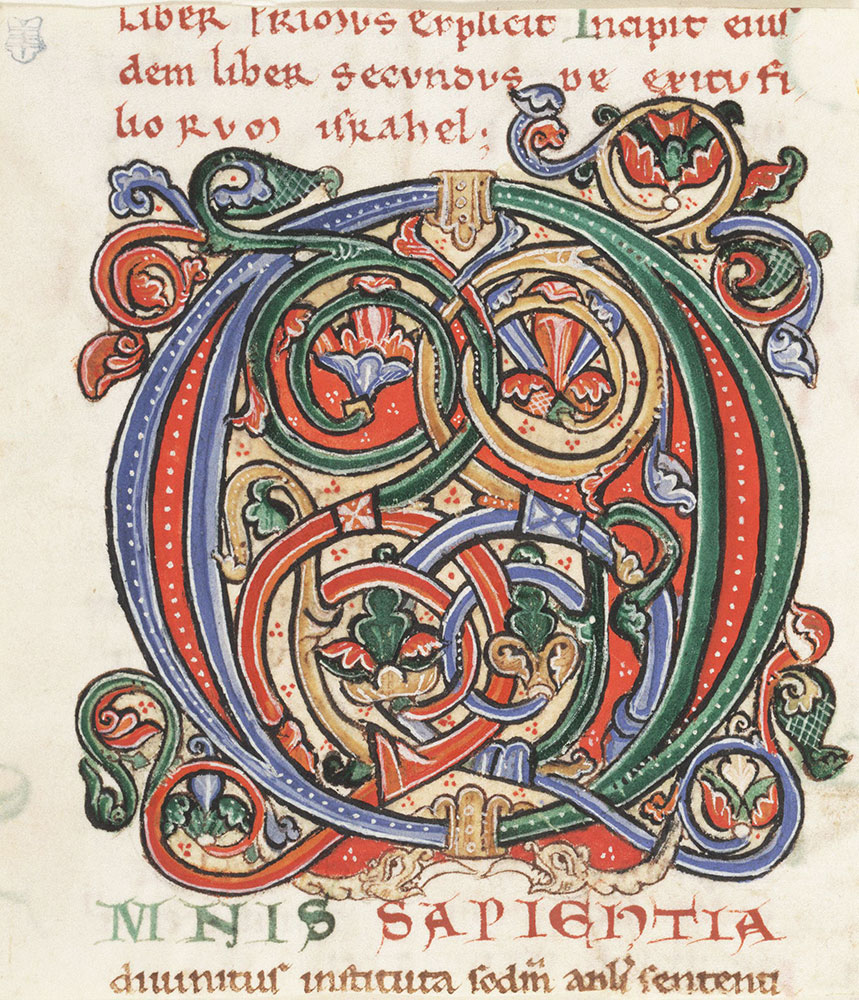 liber primus explicit Incipit eius
dem liber secundus de exitu fi
liorum israhel;
OMNIS SAPIENTIA
divinitus instituta sententi